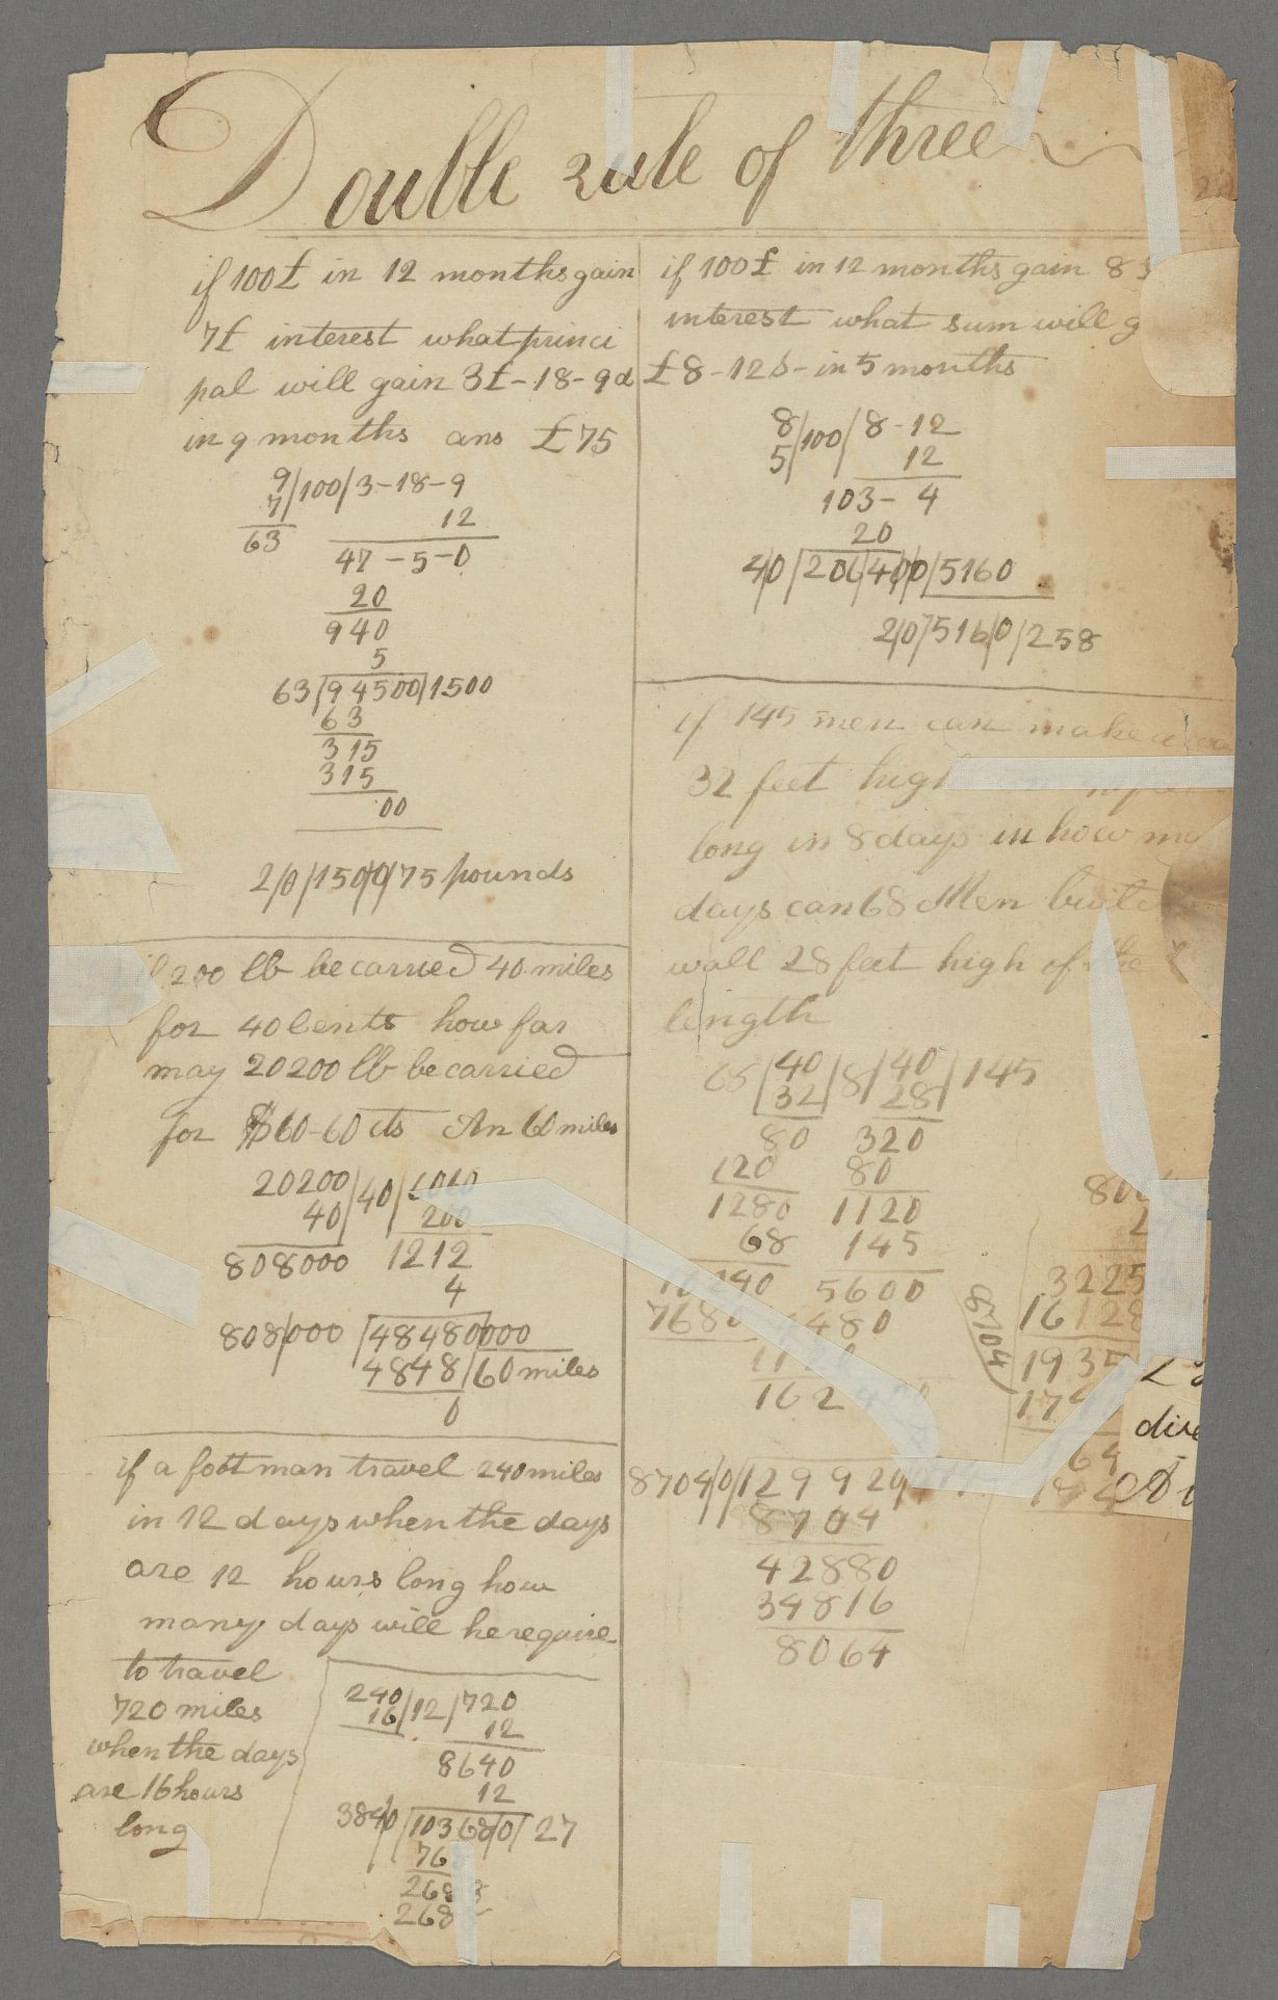 Double rule of three
if 100£ in 12 months gain
7£ interest what princi
pal will gain 3£-18-9d
in 9 months ans £75
9/100/3-18-9
7 12
63 47-5-0
20
940
5
63/94500/1500
63
315
315
00
2/0/150/0/75 pounds
200 lb be carried 40 miles
for 40 Cents how far
may 20200 lb be carried
for $60-60 cts An 60 miles
20200/40/6060
40 200
808000 1212
4
808/000 /48480/000
4848/60 miles
0
if a foot man travel 240 miles
in 12 days when the days
are 12 hours long how
many days will he require
to travel
720 miles
when the days
are 16 hours
long
240/12/720
16 12
8640
12
384/0 /10368/0/27
76
268
268
if 100£ in 12 months gain 8
interest what sum will g
£8-12s-in 5 months
8/100/8-12
5 12
103-4
20
4/0/206/40/0/5160
2/0/516/0/258
if 145 men can make a
32 feet high
long in 8 days in how
days can 68 Men
wall 28 feet high of the
length
68/40/8/40/145
32 28
80 320
120 80
1280 1120
68 145
5600
768 480
162
8704/0/129920
8704
42880
34816
8064
8704
3225
16128
1935
64
dive